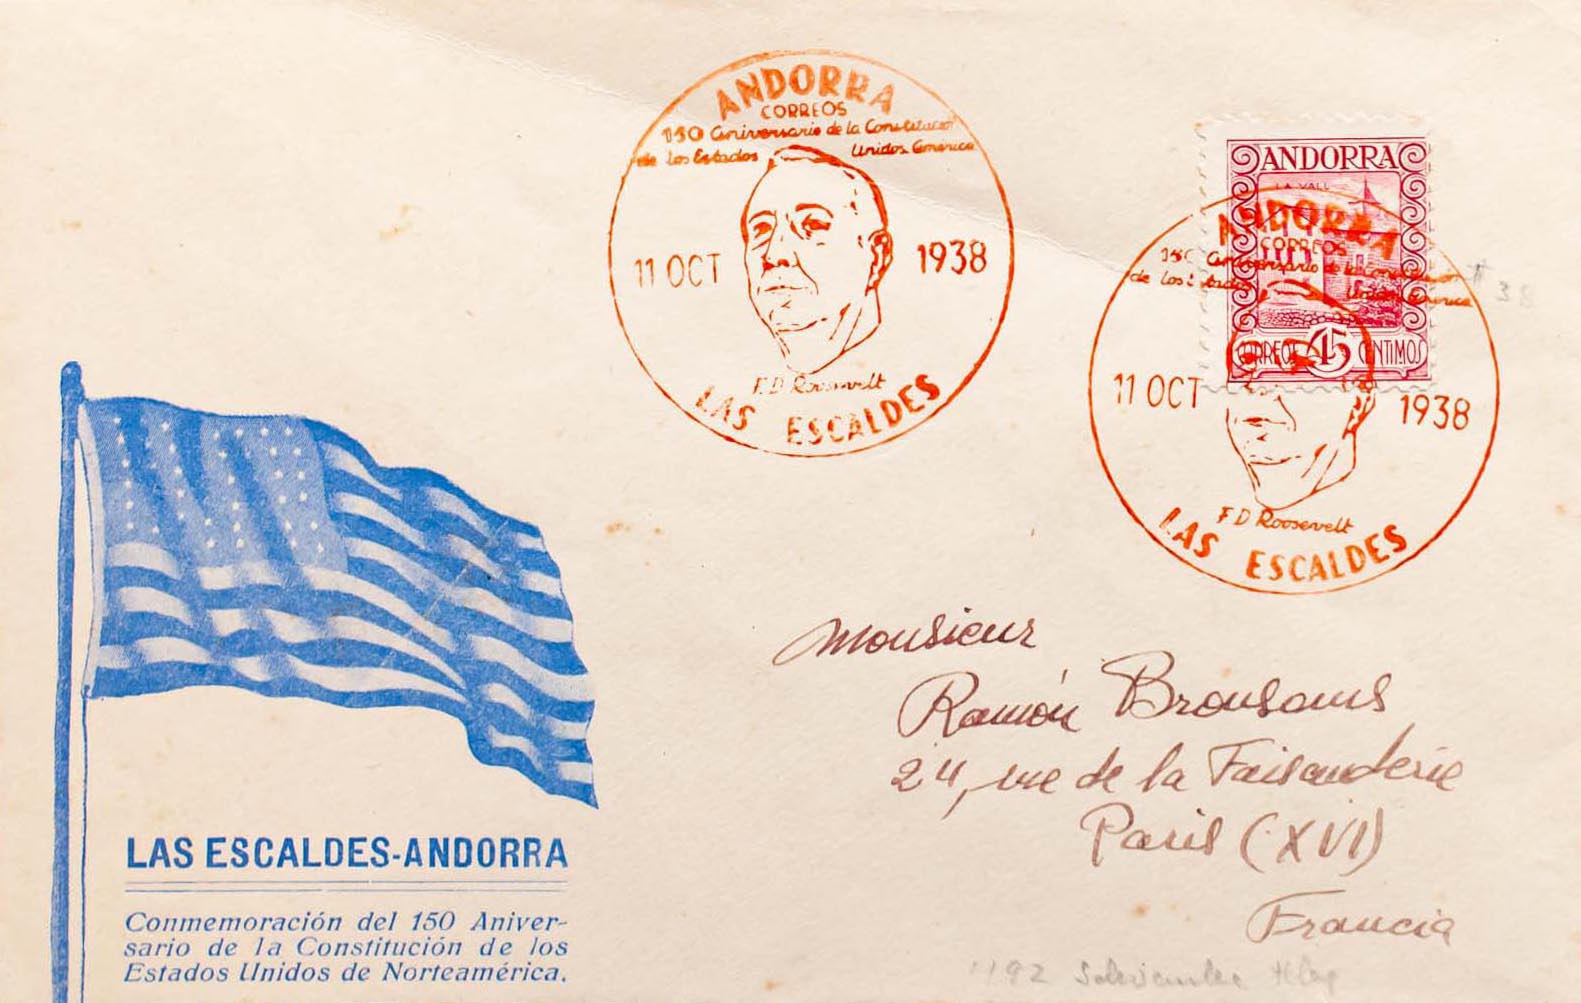 ANDORRA
CORREOS
150 Aniversario de la Constitución
de los Estados Unidos América
11 OCT 1938
F.D Roosevelt
LAS ESCALDES
ANDORRA
LA VALL
CORREOS 15 CENTIMOS
ANDORRA
CORREOS
150 Aniversario de la Constitución
de los Estados Unidos América
11 OCT 1938
F D Roosevelt
LAS ESCALDES
38
Monsieur
Ramón Brousans
24, rue de la Faisanderie
Paris (XVI)
Francia
LAS ESCALDES-ANDORRA
Conmemoración del 150 Aniver-
sario de la Constitución de los
Estados Unidos de Norteamérica.
1192